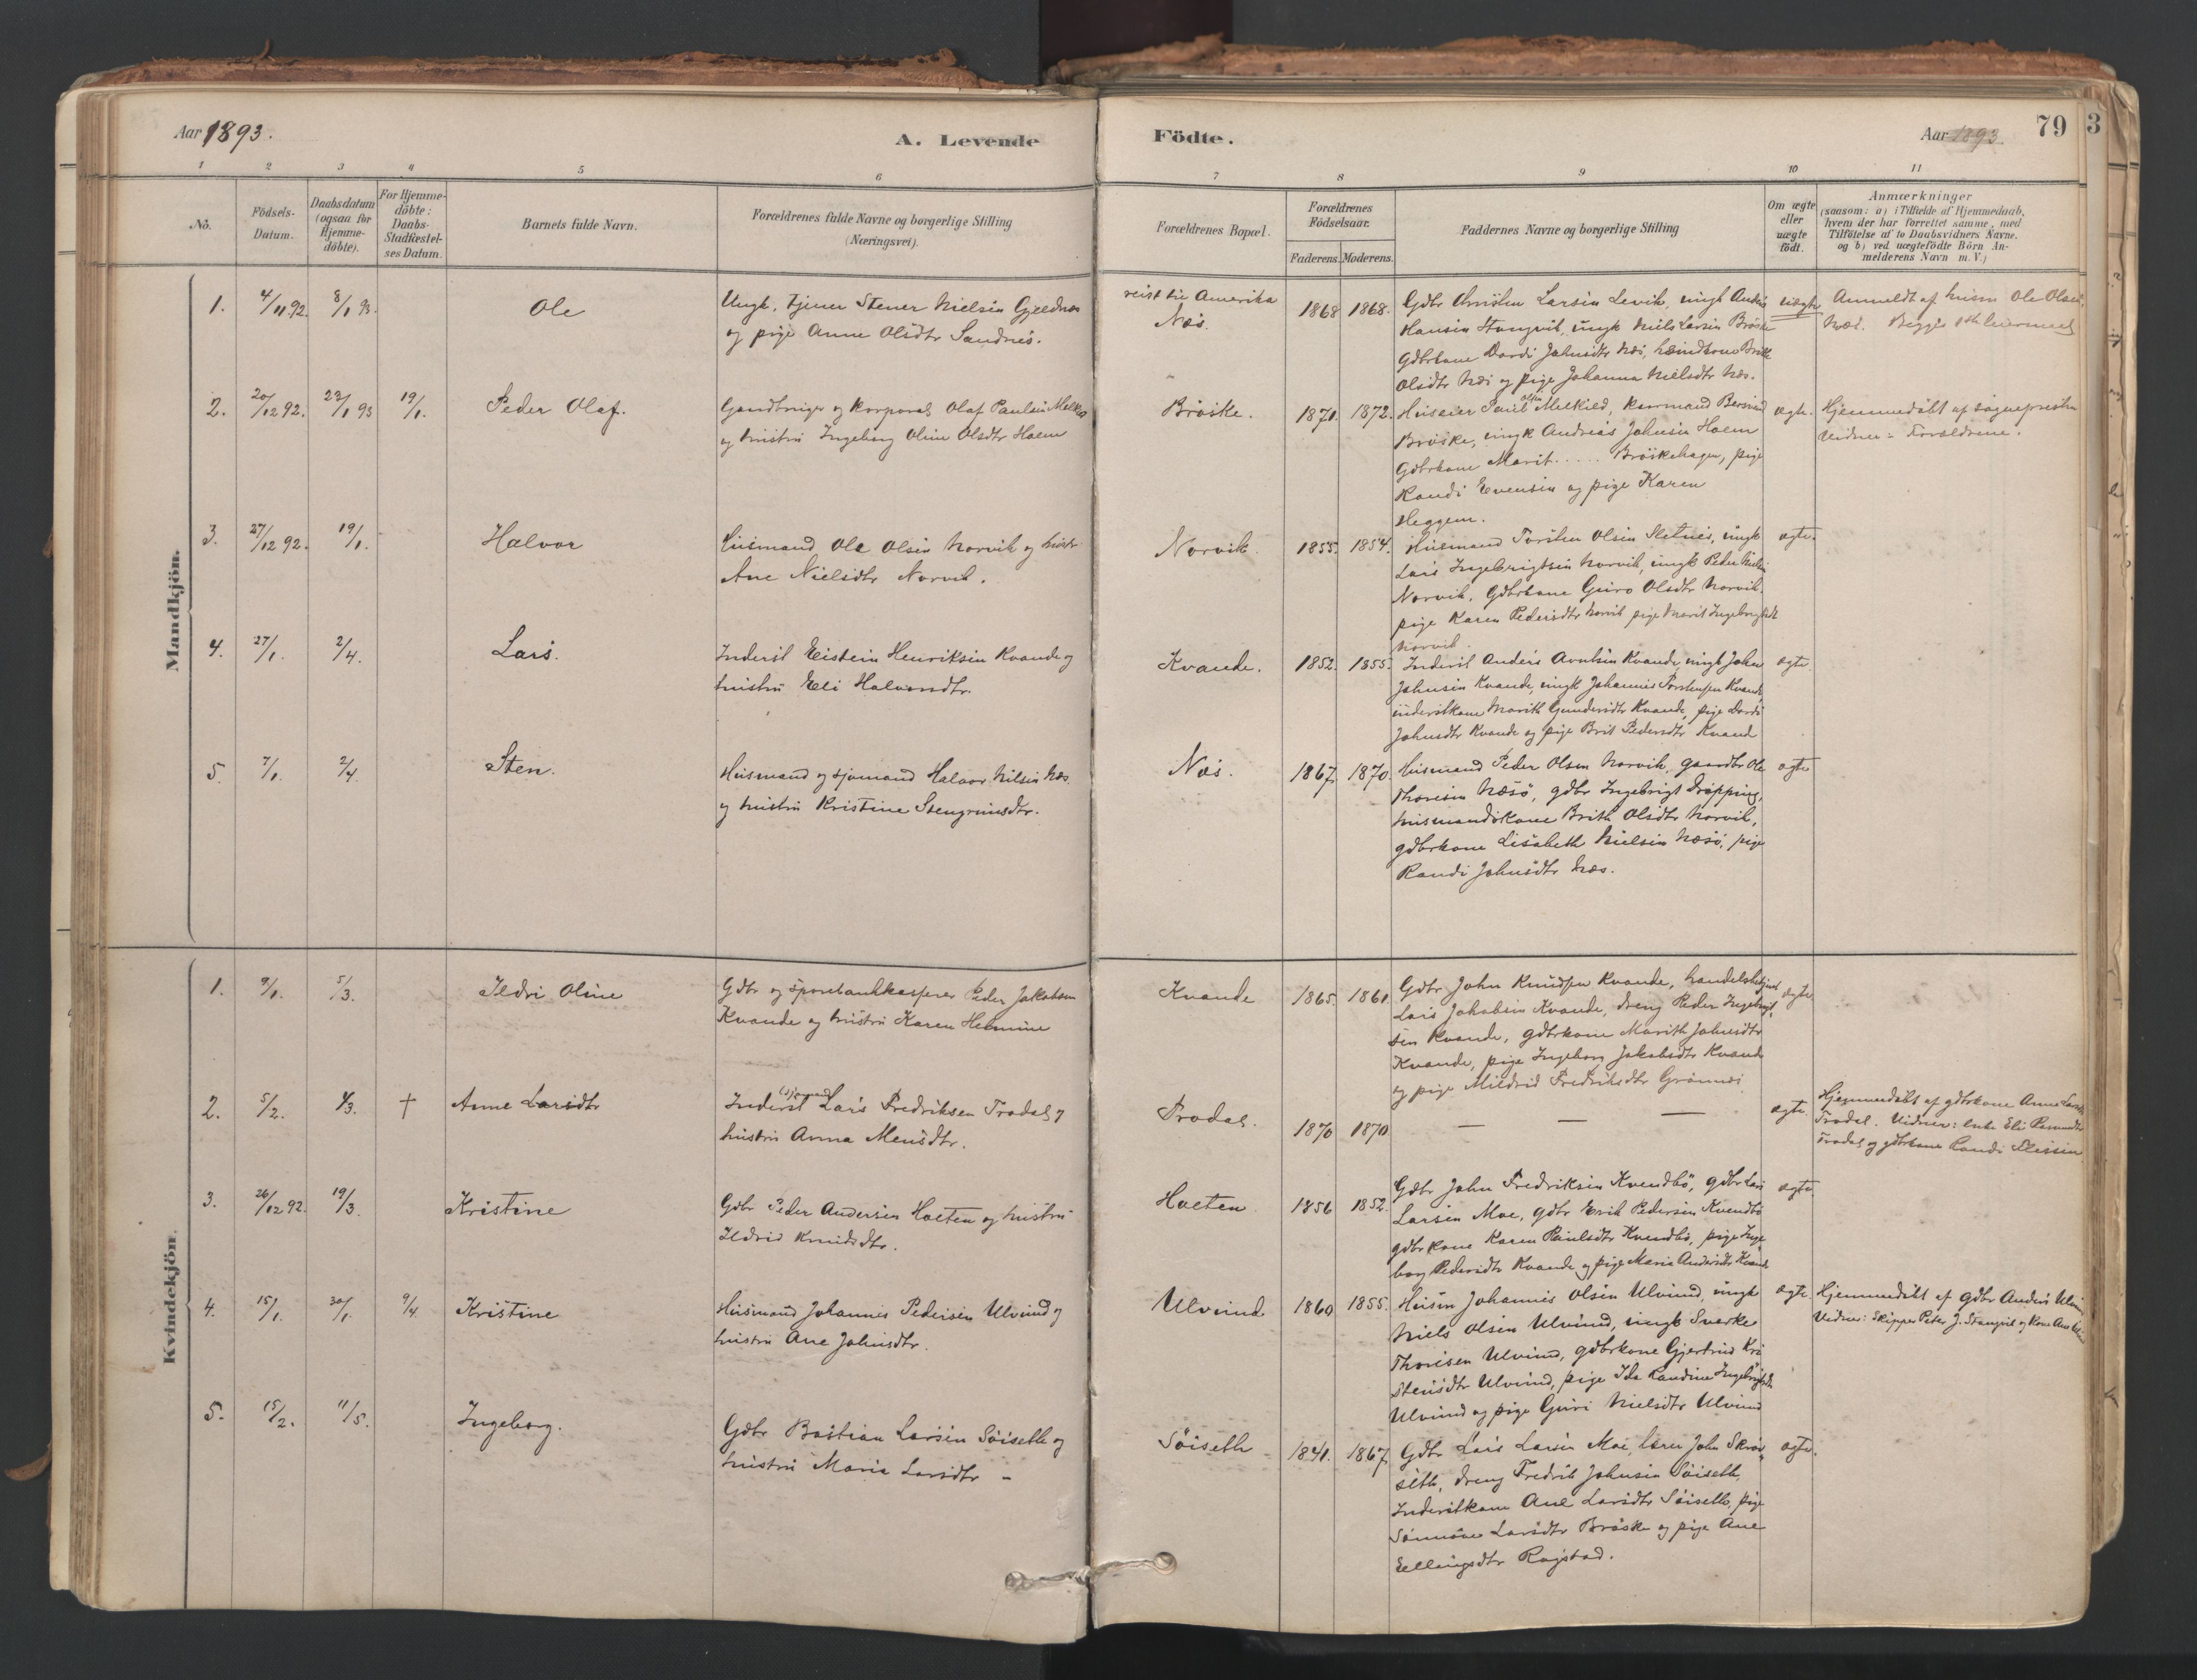 Aar 1893.
A. Levende
Födte.
Aar 1893.
79
3
1 2 3 4 5 6
7 8 9 10 11
No.
Födsels-
Datum.
Daabsdatum
(ogsaa for
Hjemme-
döbte).
For Hjemme-
döbte:
Daabs-
Stadfæstel-
ses Datum.
Barnets fulde Navn.
Forældrenes fulde Navne og borgerlige Stilling
(Næringsvei).
Forældrenes Bopæl.
Forældrenes
Födselsaar.
Faderens. Moderens.
Faddernes Navne og borgerlige Stilling
Om ægte
eller
uægte
födt.
Anmærkninger
(saasom: a) i Tilfælde af Hjemmedaab,
hvem der har forrettet samme, med
Tilföielse af to Daabsvidners Navne.
og b) ved uægtefödte Börn An-
melderens Navn m. V.)
Mandkjön.
1. 4/11 92. 8/1 93. Ole
Ungk. tjener Stener Nielsen Gjeldnæs
og pige Anne Olsdtr Sandnes.
reist til Amerika
Næs.
1868 1868.
Gdbr Larsen Levik, ungk Anders
Hansen Stangvik, ungk Niels Larsen Brøske
Gdbrkone Dordi Johnsdtr Næs,
Olsdtr Næs og pige Johanna Nielsdtr Næs.
uægte
Anmeldt af husm Ole Olsen
Næs. Begges
2. 20/12 92. 22/1 93 19/1. Peder Olaf.
Gaardbruger og korporal Olaf Paulsen
og hustru Ingeborg Oline Olsdtr Holm
Brøske.
1871. 1872.
Huseier Paul Olsen Melkild,
Brøske, ungk Andreas Johnsen Holm
Gdbrkone Marit ..... Brøskehagen, pige
Randi Evensen og pige Karen
Heggem.
ægte.
Hjemmedøbt af sognepresten
Vidner: Forældrene.
3. 27/12 92. 19/1. Halvor
Husmand Ole Olsen Norvik og hustr
Ane Nielsdtr Norvik.
Norvik.
1855. 1854.
Husmand Torsten Olsen Sletnes, ungk
Lars Ingebrigtsen Norvik, ungk Peder Nielsen
Norvik, Gdbrkone Guro Olsdtr Norvik,
pige Karen Pedersdtr Norvik pige Marit Ingebrigtsdt
Norvik.
ægte.
4. 27/1. 2/4. Lars.
Inderst Eistein Henriksen Kvande og
hustru Eli Halvorsdtr.
Kvande.
1852. 1855.
Inderst Anders Kvande, ungk John
Johnsen Kvande, ungk Johannes Torstensen Kvande
inderstkone Marith Gundersdtr Kvande, pige Dordi
Johnsdtr Kvande og pige Brit Pedersdtr Kvand
ægte.
5. 7/1. 2/4. Sten.
Husmand og sjømand Halvor Nilsen Næs
og hustru Kristine Stengrimsdtr.
Næs.
1867. 1870.
Husmand Peder Olsen Norvik, gaardbr Ole
Thoresen Næsø, gdbr Ingebrigt Drøpping,
husmandskone Brith Olsdtr Norvik,
gdbrkone Lisabeth Nielsen Næsø, pige
Randi Johnsdtr Næs.
ægte
Kvindekjön.
1. 9/1. 5/3. Ildri Oline
Gdbr og sparebankkasserer Peder Jakobsen
Kvande og hustru Karen Helmine
Kvande
1865. 1861.
Gdbr John Knudsen Kvande,
Lars Jakobsen Kvande, dreng Peder Ingebrigt-
sen Kvande, gdbrkone Marith Johnsdtr
Kvande, pige Ingeborg Jakobsdtr Kvande
og pige Mildrid Fredriksdtr Grønnes
ægte.
2. 5/2. 4/3. † Anne Larsdtr
Inderst (sjømand) Lars Fredriksen Trodal og
hustru Anna Monsdtr.
Trodal.
1870 1870
— — —
ægte.
Hjemmedøbt af gdbrkone Anne Larsdtr
Trodal. Vidner: enke Eli
Trodal og gdbrkone Randi
3. 26/12 92. 19/3. Kristine
Gdbr Peder Andersen Holten og hustru
Ildrid Knudsdtr.
Holten
1856 1852.
Gdbr John Fredriksen Kvendbø, gdbr Lars
Larsen Moe, gdbr Erik Pedersen Kvendbø
gdbrkone Karen Paulsdtr Kvendbø, pige Inge
borg Pedersdtr Kvande og pige Marie Andersdtr Kvande
ægte.
4. 15/1. 30/1. 9/4. Kristine
Husmand Johannes Pedersen Ulvund og
hustru Ane Johnsdtr.
Ulvund.
1860 1855.
Husm Johannes Olsen Ulvund, ungk
Niels Olsen Ulvund, ungk Sverke
Thoresen Ulvund, gdbrkone Gjertrud Kri
stensdtr Ulvund, pige Ida Randine Ingebrigtsdtr
Ulvund og pige Guri Nielsdtr Ulvund
ægte.
Hjemmedøbt af gdbr Anders Ulvund
Vidner: Skipper Peter J. Stangvik og kone Ane
5. 15/2. 11/5. Ingeborg.
Gdbr Bastian Larsen Søiseth og
hustru Marie Larsdtr –
Søiseth
1841. 1867.
Gdbr Lars Larsen Moe, lærer John Skrøv-
seth, dreng Fredrik Johnsen Søiseth,
Inderstkone Ane Larsdtr Søiseth, pige
Larsdtr Brøske og pige Ane
Ellingsdtr Rogstad.
ægte.